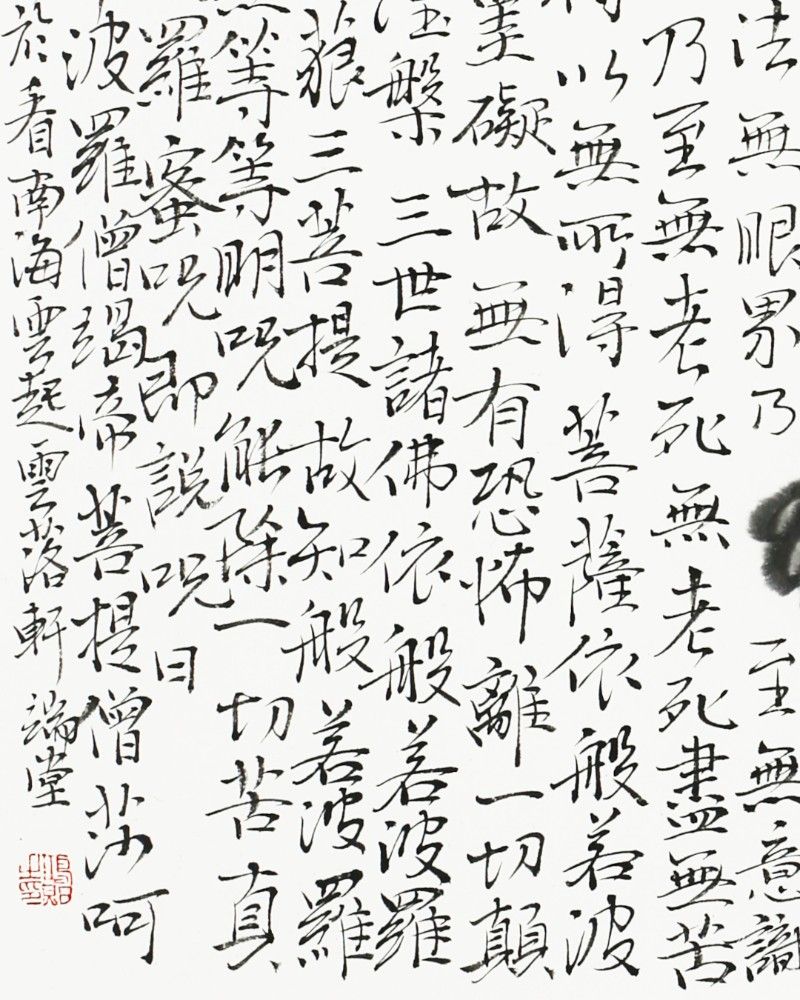 法無眼界乃至無意識
乃至無老死無老死盡無苦
以無所得菩薩依般若波
罣礙故無有恐怖離一切顛
涅槃三世諸佛依般若波羅
藐三菩提故知般若波羅
無等等明呪能除一切苦真
羅蜜呪即說呪曰
波羅僧揭帝菩提僧莎呵
於看南海雲起雲落軒端堂